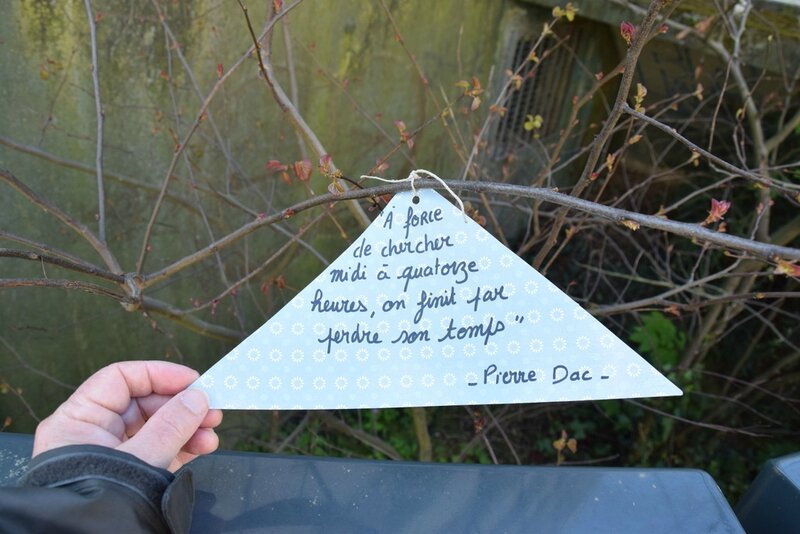 "À force
de chercher
midi à quatorze
heures, on finit par
perdre son temps"
- Pierre Dac -